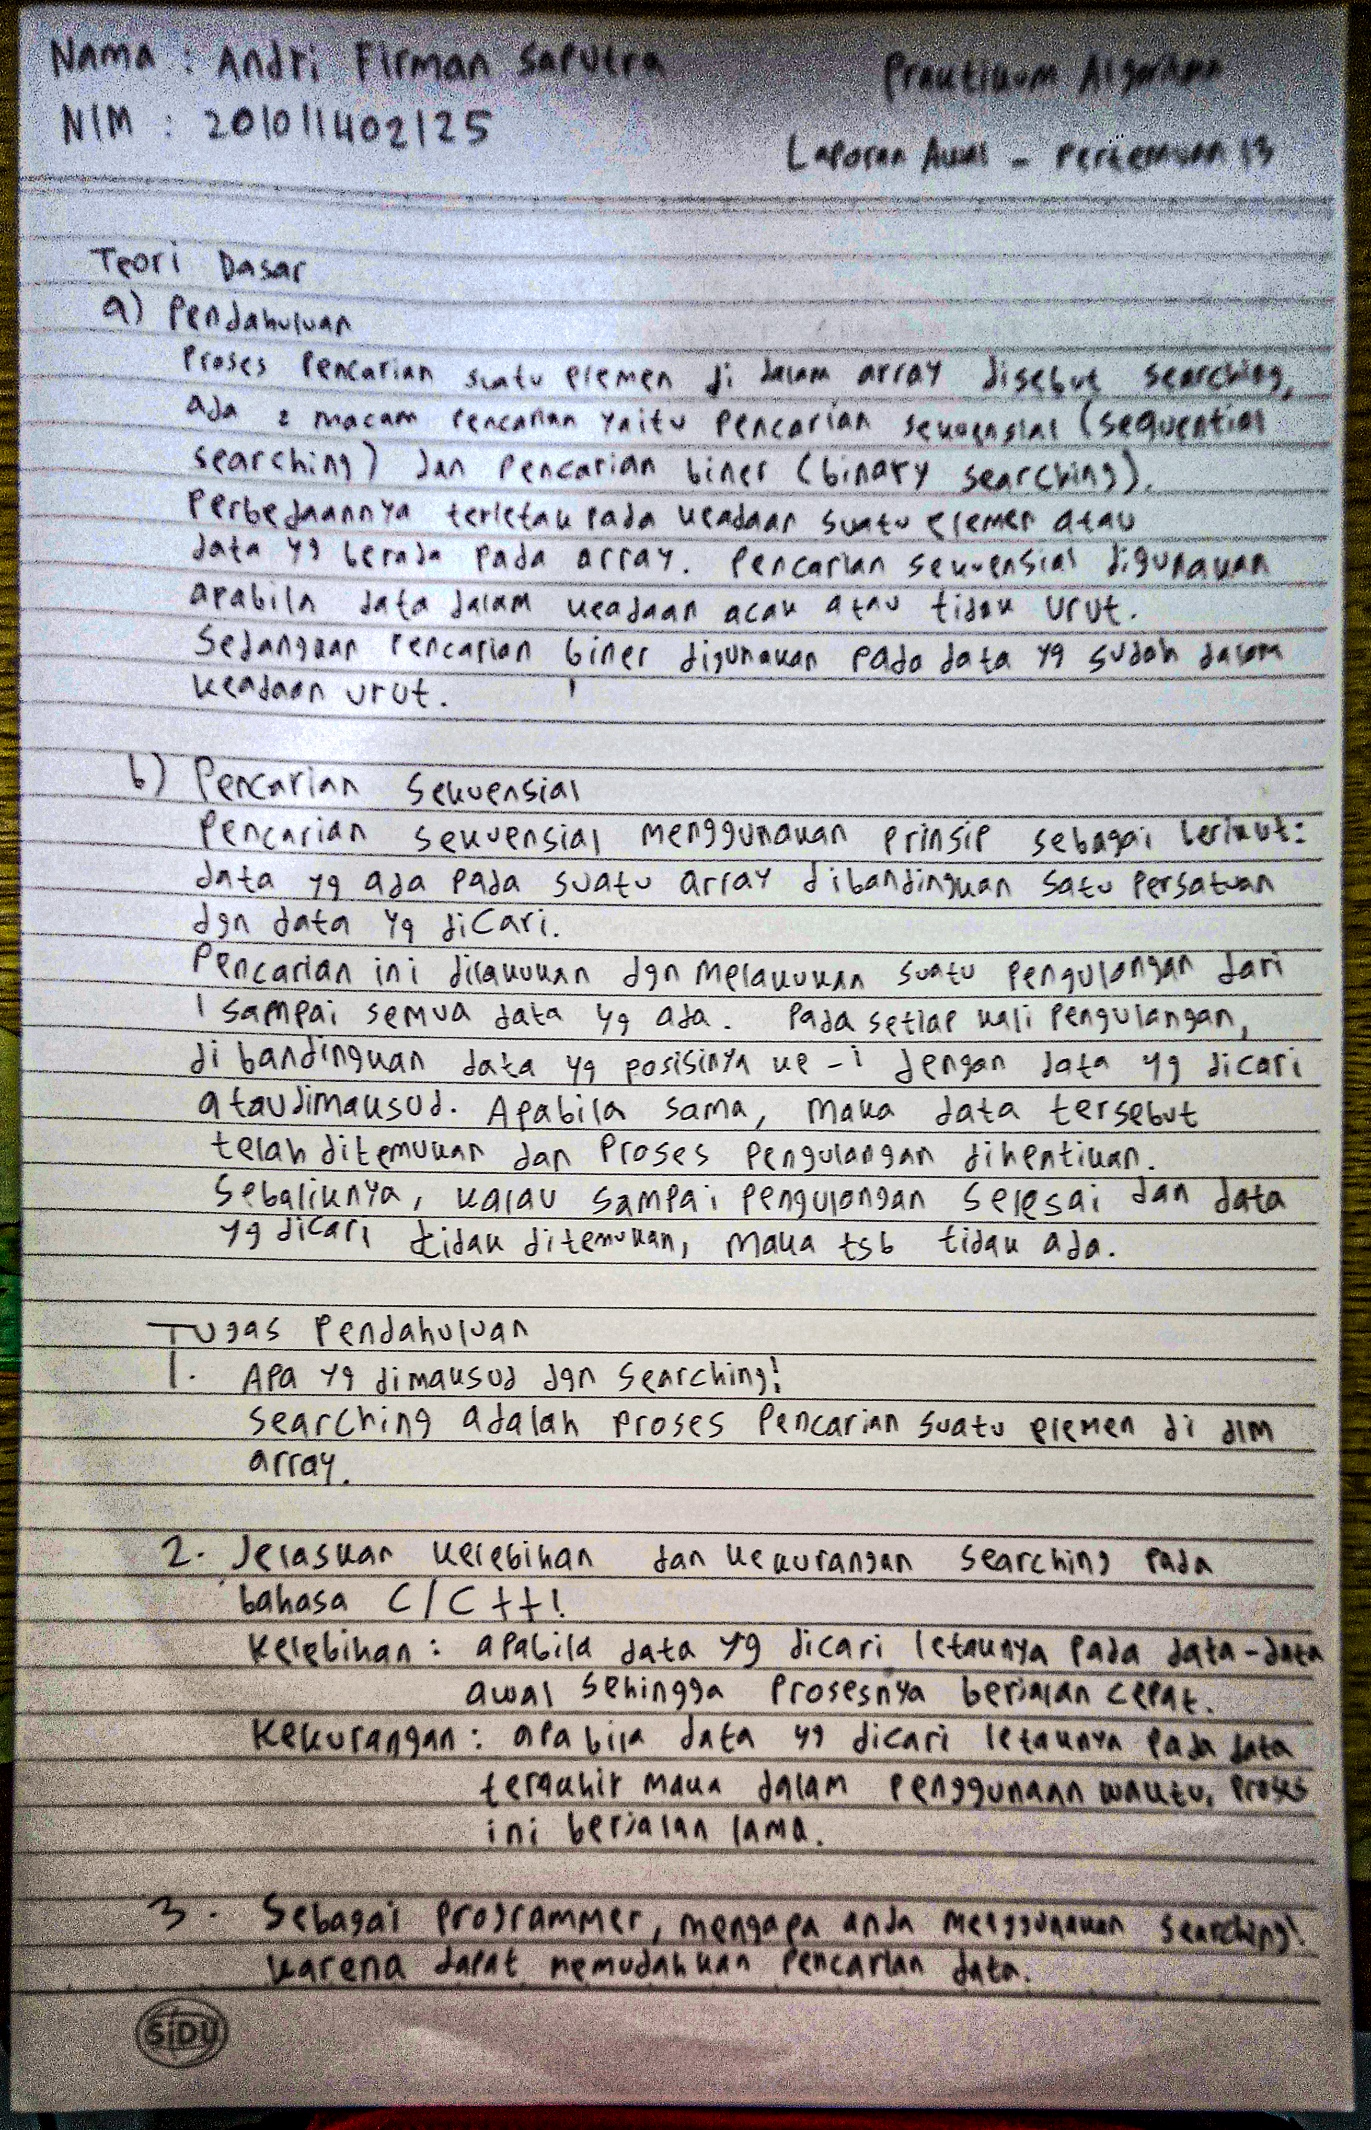 Nama : Andri Firman Saputra
Praktikum Algoritma
NIM : 201011402125
Laporan Awal - Pertemuan 13
Teori Dasar
a) Pendahuluan
Proses Pencarian suatu elemen di dalam array disebut searching,
ada 2 macam Pencarian yaitu Pencarian sekuensial (sequential
searching) dan Pencarian biner (binary searching).
Perbedaannya terletak pada keadaan suatu elemen atau
data yg berada pada array. Pencarian sekuensial digunakan
apabila data dalam keadaan acak atau tidak urut.
Sedangkan Pencarian biner digunakan pada data yg sudah dalam
keadaan urut.
b) Pencarian Sekuensial
Pencarian sekuensial menggunakan prinsip sebagai berikut:
data yg ada pada suatu array dibandingkan satu persatuan
dgn data yg dicari.
Pencarian ini dilakukan dgn melakukan suatu pengulangan dari
1 sampai semua data yg ada. Pada setiap kali Pengulangan,
di bandingkan data yg posisinya ke-i dengan data yg dicari
atau dimaksud. Apabila sama, maka data tersebut
telah ditemukan dan Proses Pengulangan dihentikan.
Sebaliknya, kalau sampai pengulangan selesai dan data
yg dicari tidak ditemukan, maka tsb tidak ada.
Tugas Pendahuluan
1. Apa yg dimaksud dgn searching!
searching adalah proses Pencarian suatu elemen di dlm
array.
2. Jelaskan kelebihan dan kekurangan searching pada
bahasa C/C++!
Kelebihan : apabila data yg dicari letaknya pada data-data
awal sehingga Prosesnya berjalan cepat.
Kekurangan : apabila data yg dicari letaknya pada data
terakhir maka dalam penggunaan waktu, proses
ini berjalan lama.
3. Sebagai Programmer, mengapa anda menggunakan searching!
karena dapat memudahkan Pencarian data.
SiDU